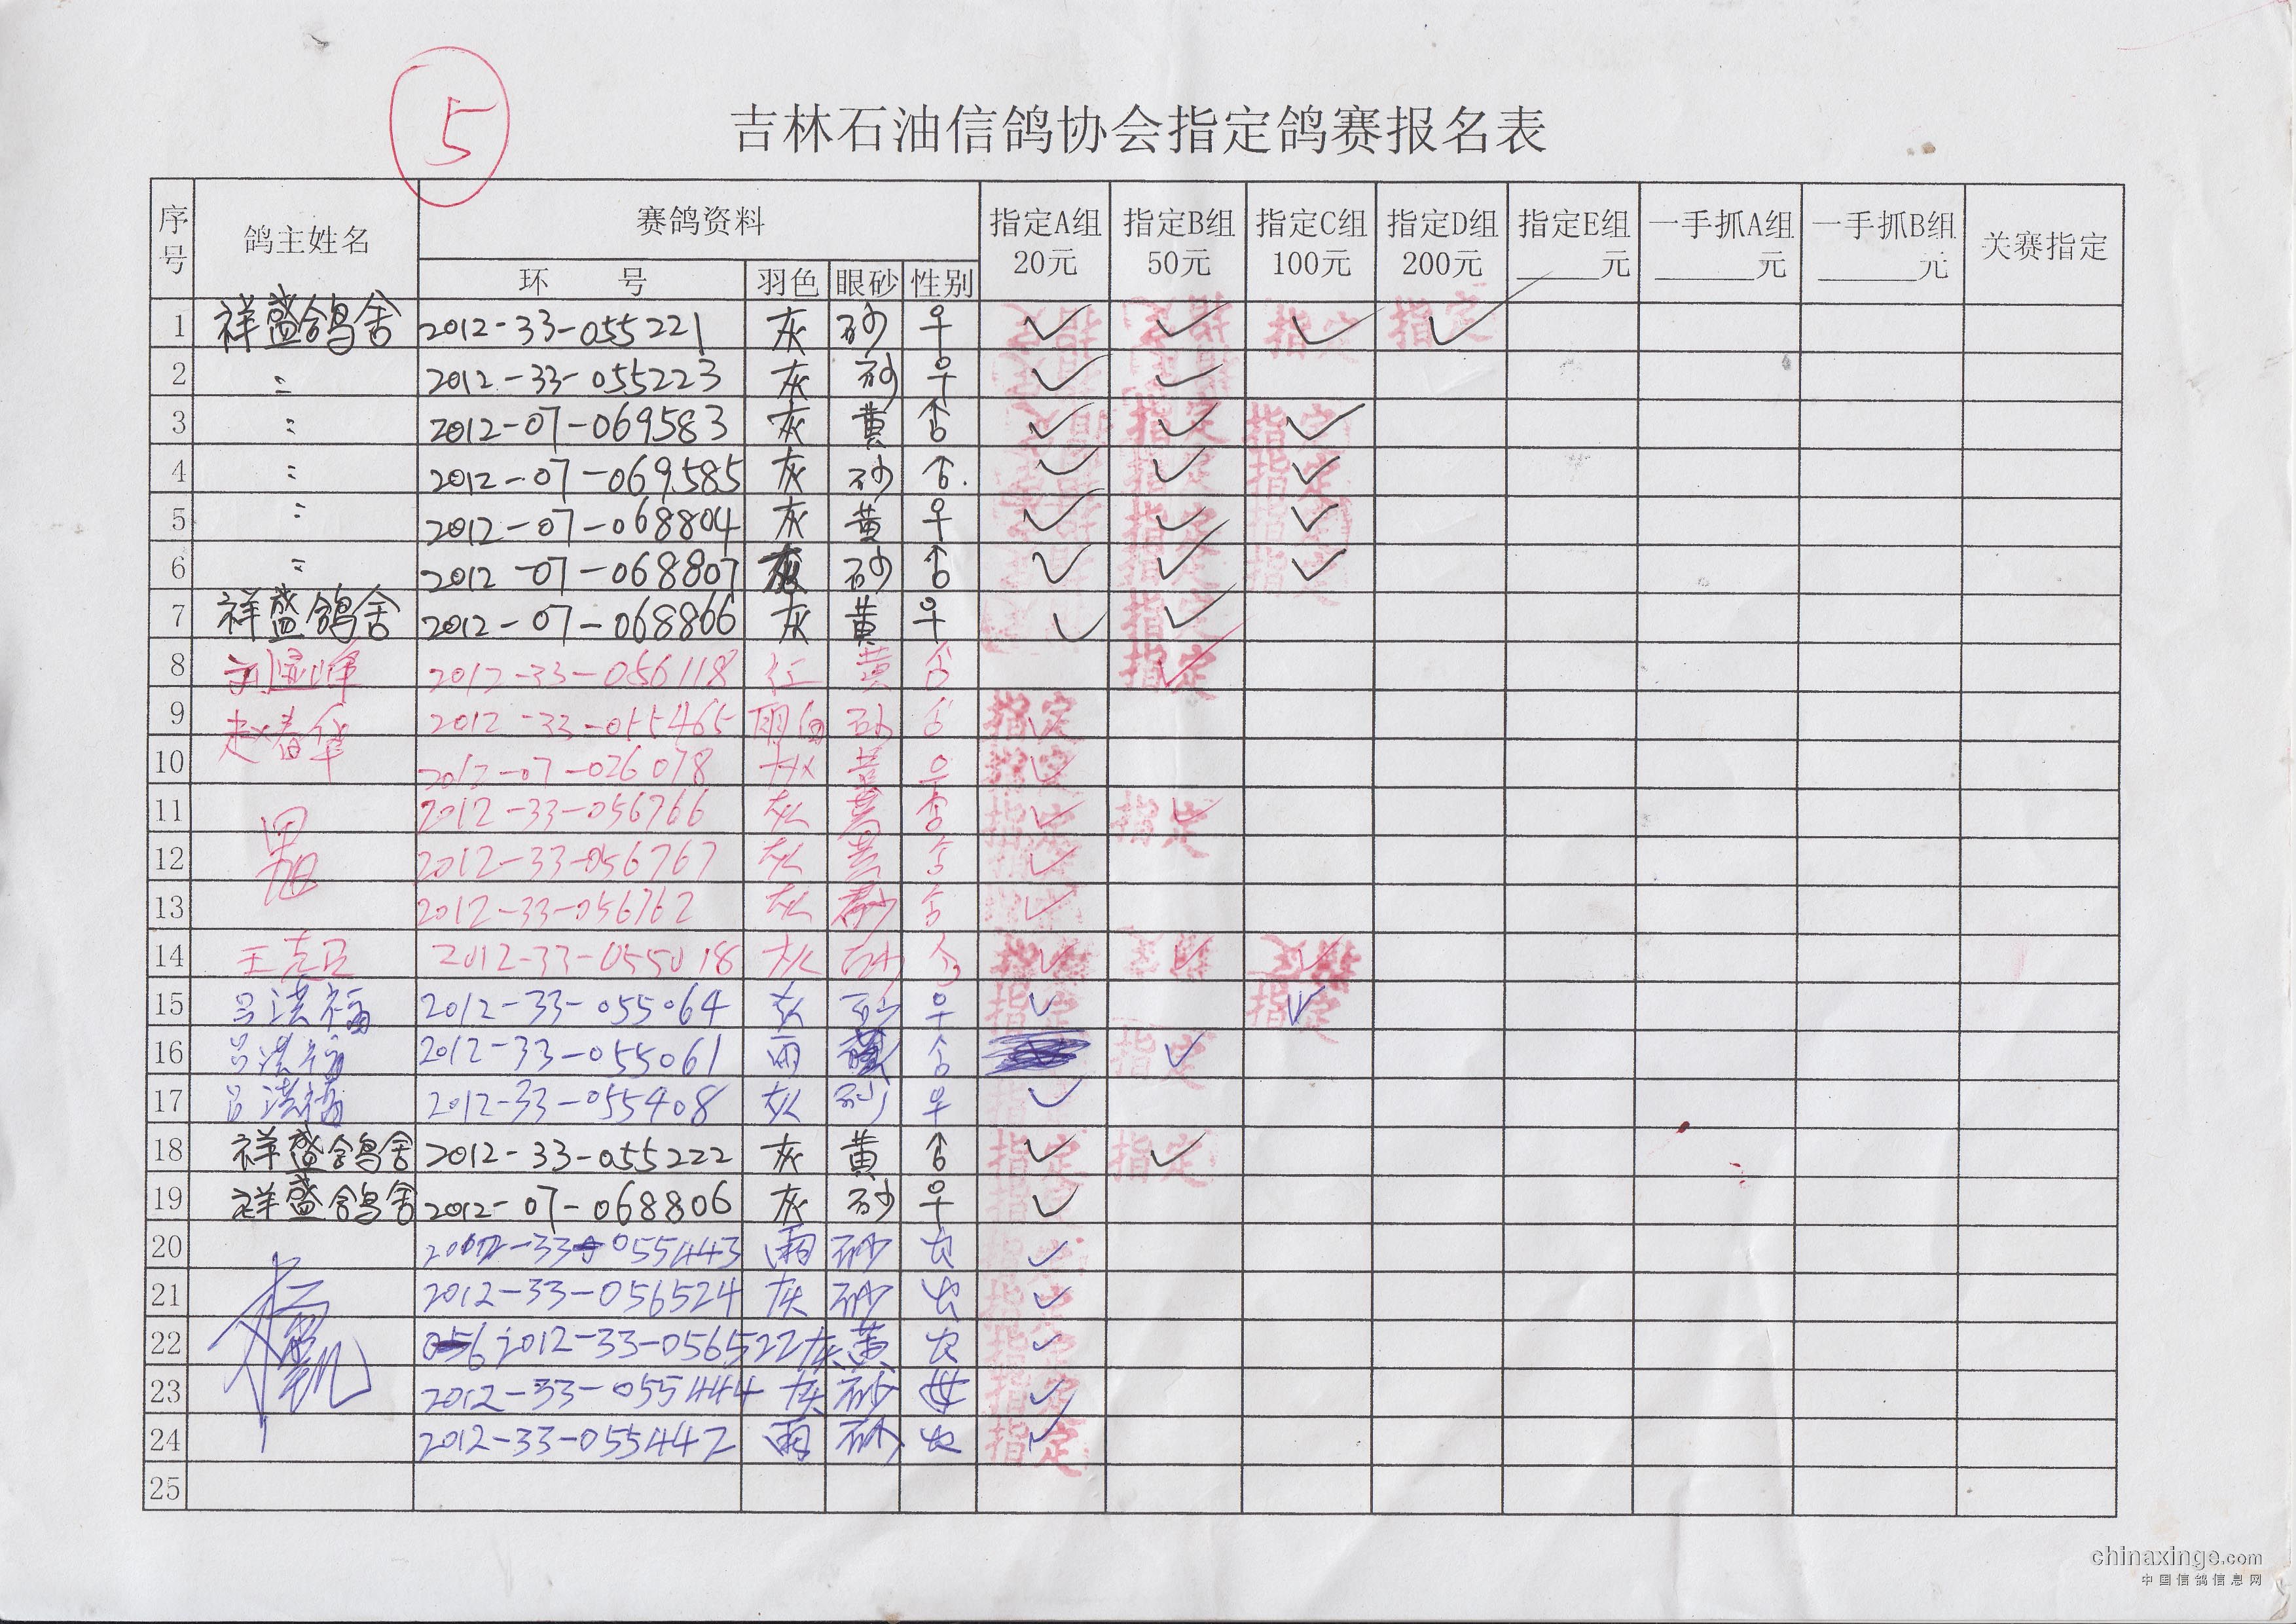 5
吉林石油信鸽协会指定鸽赛报名表
序号 鸽主姓名 赛鸽资料 指定A组 20元 指定B组 50元 指定C组 100元 指定D组 200元 指定E组 ____元 一手抓A组 ____元 一手抓B组 ____元 关赛指定
环 号 羽色 眼砂 性别
1 祥盛鸽舍 2012-33-055221 灰 砂 ♀ 指定 ✓ 指定 ✓ 指定 ✓ 指定 ✓
2 〃 2012-33-055223 灰 砂 ♀ ✓ ✓
3 〃 2012-07-069583 灰 黄 ♂ 指定 ✓ 指定 ✓ 指定 ✓
4 〃 2012-07-069585 灰 砂 ♂ ✓ 指定 ✓ 指定 ✓
5 〃 2012-07-068804 灰 黄 ♀ 指定 ✓ 指定 ✓ 指定 ✓
6 〃 2012-07-068807 灰 砂 ♂ ✓ 指定 ✓ 指定 ✓
7 祥盛鸽舍 2012-07-068866 灰 黄 ♀ ✓ 指定 ✓
8 2012-33-056118 红 黄 ♂ 指定 ✓
9 赵春华 2012-33-055465 雨白 砂 ♂ 指定 ✓
10 2012-07-026078 灰 黄 ♀ 指定 ✓
11 2012-33-056766 灰 黄 ♂ 指定 ✓ 指定 ✓
12 2012-33-056767 灰 黄 ♂ 指定 ✓
13 2012-33-056762 灰 砂 ♂ 指定 ✓
14 王克卫 2012-33-055018 灰 砂 ♂ 指定 ✓ 指定 ✓ 指定 ✓
15 吕洪福 2012-33-055064 灰 砂 ♀ 指定 ✓ 指定 ✓
16 吕洪福 2012-33-055061 雨 ♂ 指定 ✓
17 吕洪福 2012-33-055408 灰 砂 ♀ ✓
18 祥盛鸽舍 2012-33-055222 灰 黄 ♂ 指定 ✓ 指定 ✓
19 祥盛鸽舍 2012-07-068806 灰 砂 ♀ 指定 ✓
20 2012-33-055443 雨 砂 ✓
21 2012-33-056524 灰 砂 指定 ✓
22 2012-33-056522 灰 黄 指定 ✓
23 2012-33-055444 灰 砂 指定 ✓
24 2012-33-055442 雨 砂 指定 ✓
25
chinaxinge.com
中国信鸽信息网